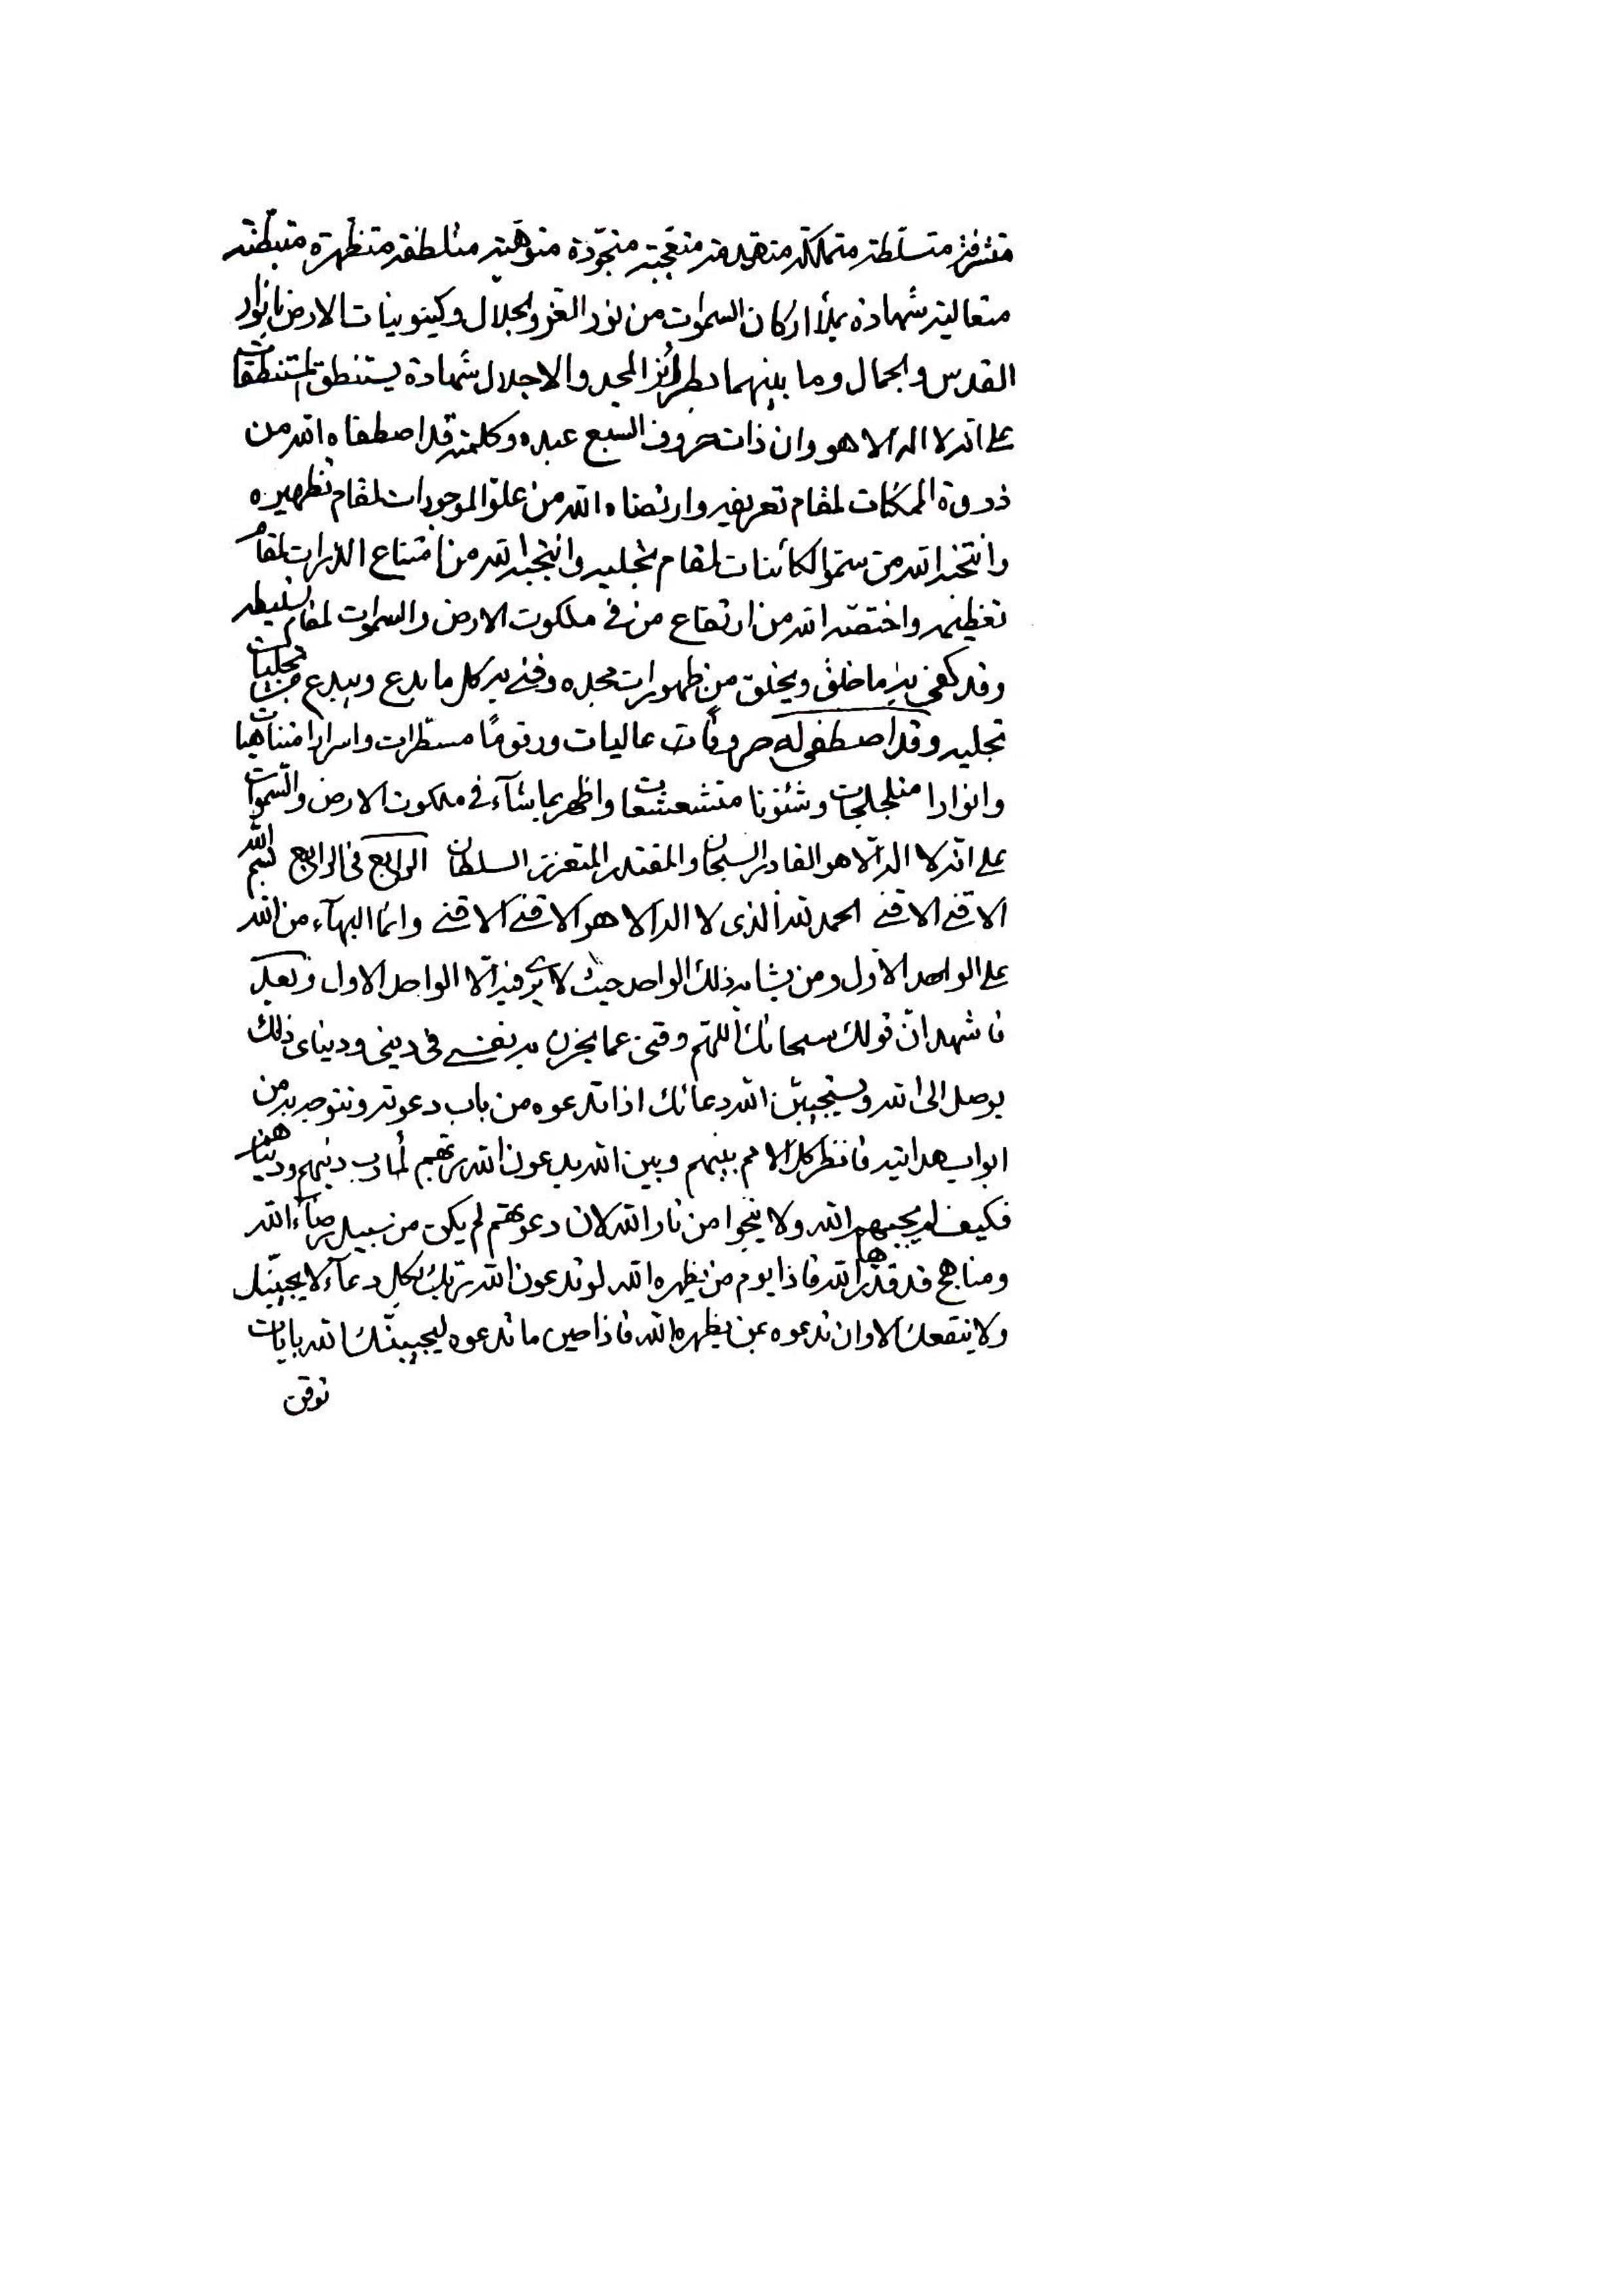 متشرفة متسلطة متملكة متقدمة متجودة متلطفة متظهرة متبطنة
متعالية شهادة يملأ اركان السموات من نور العز والجلال وكينونيات الارض بانوار
القدس والجمال وما بينهما بطرائز المجد والاجلال شهادة يستنطق المستنطقات
على انه لا اله الا هو وان ذات حروف السبع عبده وكلمته قد اصطفاه الله من
ذروة الممكنات لمقام تعريفه وارتضاه الله من علو الموجودات لمقام تظهيره
وانتخبه الله من سمو الكائنات لمقام تجليه وانتجبه الله من امتناع الذرات لمقام
تعظيمه واختصه الله من ارتفاع من في ملكوت الارض والسموات لمقام تسليطه
وقد كفى به ما خلق ويخلق من ظهورات مجده وفنى به كل ما بدع ويبدع تجليات
تجليه وقد اصطفى له حروفات عاليات ورقوما مسطرات واسرارا متناهيات
وانوارا متلجلجات وشئونا متشعشعات واظهر بما يشآء في ملكوت الارض والسموات
على انه لا اله الا هو القادر السبحان والمقتدر المتعزز السلطان الرابع في الرابع بسم الله
الاقنى الاقنى الحمد لله الذى لا اله الا هو الاقنى الاقنى وانما البهآء من الله
على الواحد الاول ومن يشابه ذلك الواحد حيث لا يرى فيه الا الواحد الاول وبعد
فاشهد ان قولك سبحانك اللهم وقنى عما يحزن به نفسي في دينى ودنياى ذلك
يوصل الى الله ويستجيبن الله دعائك اذا تدعوه من باب دعوته وتتوجه به من
ابواب هدايته فانظر كل الامم بينهم وبين الله يدعون الله ربهم لمآرب دينهم ودنياهم
فكيف لم يجيبهم الله ولا ينجوا من نار الله لان دعوتهم لم يكن من سبيل رضآء الله
ومناهج قد قدرها الله فاذا يوم من يظهره الله لو تدعون الله ربك بكل دعآء لا يجيبنك
ولا ينفعك الا وان تدعوه بمن يظهره الله فاذا حين ما تدعوه ليجيبنك الله بايات
توقن